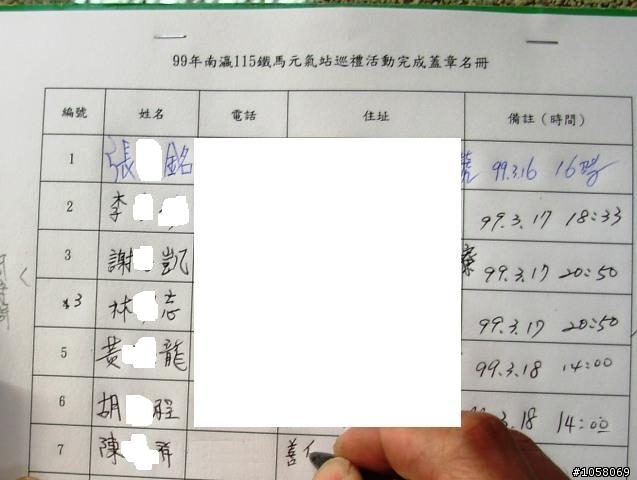 99年南瀛115鐵馬元氣站巡禮活動完成蓋章名冊
編號 姓名 電話 住址 備註（時間）
1 張 銘 99.3.16 16時
2 李 99.3.17 18:33
3 謝 凱 寮 99.3.17 20:50
*3 林 志 99.3.17 20:50
5 黃 龍 99.3.18 14:00
6 胡 程 3.18 14:00
7 陳 善
#1058069